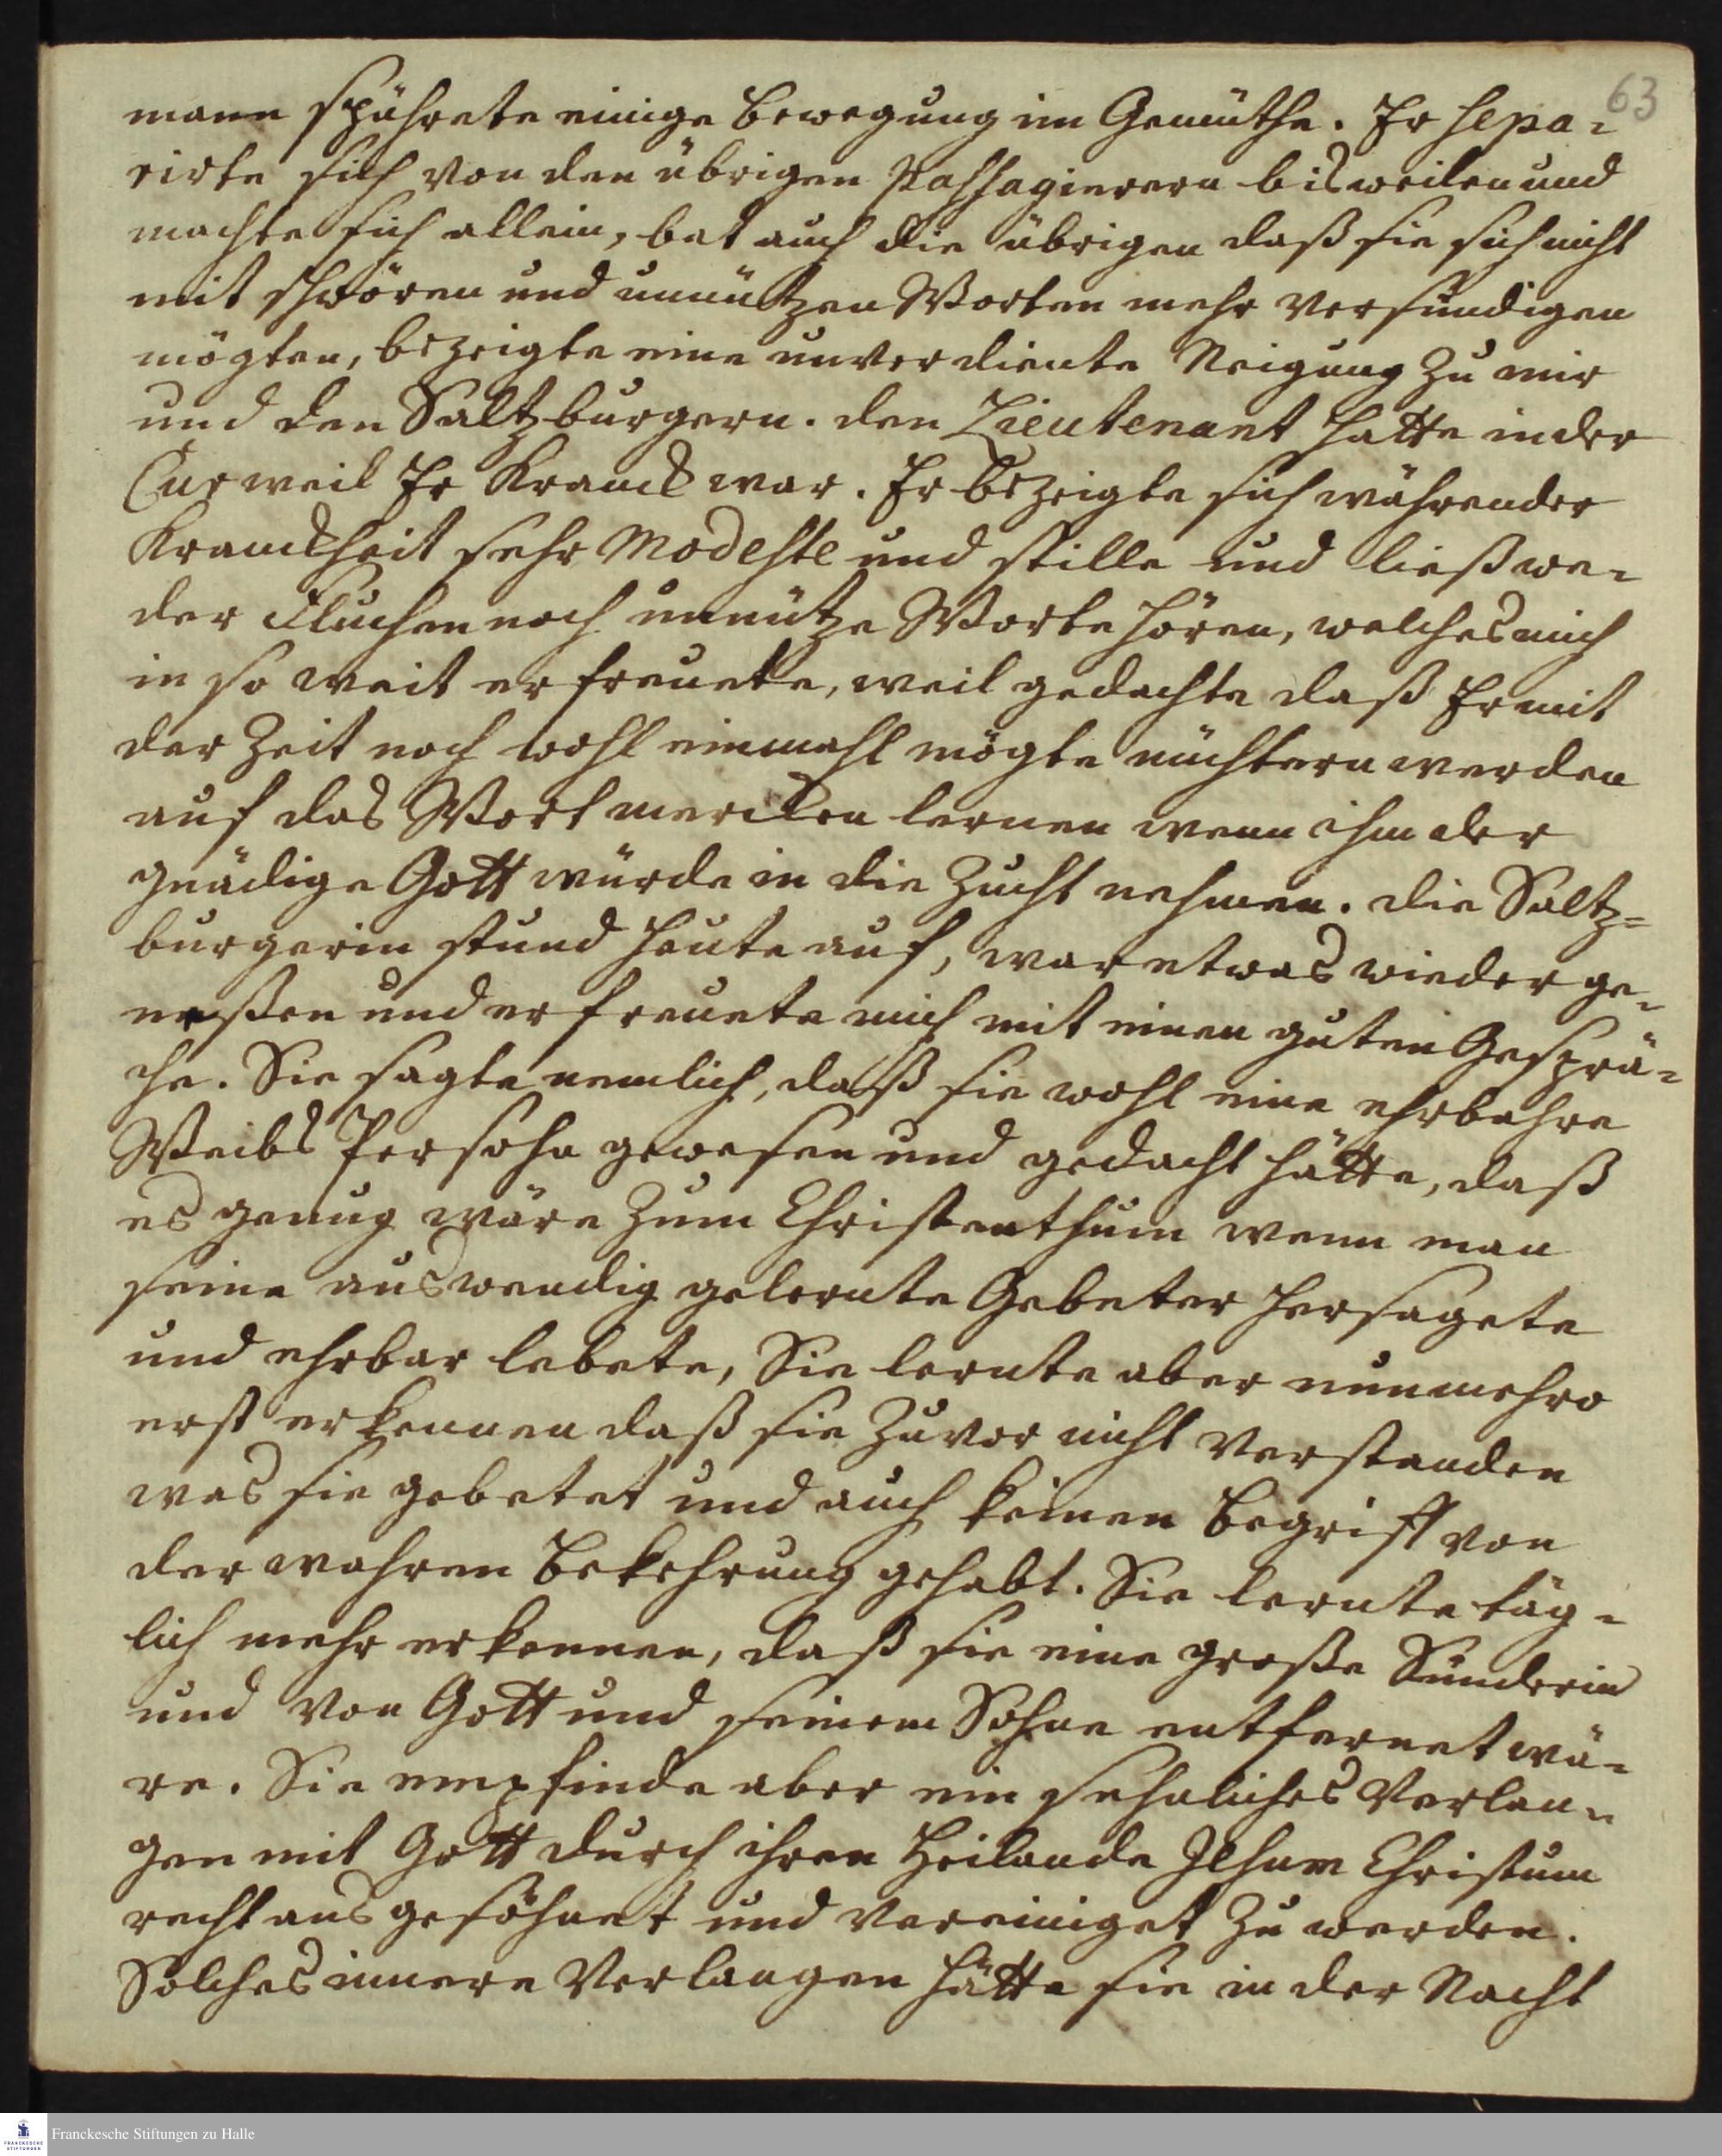 63
mann spührete einige Bewegung im Gemüthe. Er sepa-
rirte sich von den übrigen Passagierern bisweilen und
machte sich allein, bat auch die übrigen daß sie sich nicht
mit schwören und unnützen Worten mehr versündigen
mögten, bezeigte eine unverdiente Neigung zu mir
und den Saltzburgern. den Lieutenant hatte in der
Cur weil Er Kranck war. Er bezeigte sich während er
Kranckheit sehr modeste und stille und ließ we-
der Fluchen noch unnütze Worte hören, welches mich
in so weit erfreuete, weil gedachte daß Er mit
der Zeit noch wohl einmahl mögte nüchtern werden
auf das Wort mercken lernen wenn ihm der
gnädige Gott würde in die Zucht nehmen. die Saltz=
burgerin stund heute auf, war etwas wieder ge-
neßen und erfreuete mich mit einen guten Gesprä-
che. Sie sagte nemlich, daß sie wohl eine ehrbahre
Weibs Persohn gewesen und gedacht hätte, daß
es genug wäre zum Christenthum wenn man
seine auswendig gelernte Gebeter hersagete
und ehrbar lebete, Sie lernte aber nunmehro
erst erkennen daß sie zuvor nicht verstanden
was sie gebetet und auch keinen Begriff von
der wahren Bekehrung gehabt. Sie lernte täg-
lich mehr erkennen, daß sie eine große Sünderin
und von Gott und seinem Sohne entfernet wä-
re. Sie empfinde aber ein sehnliches Verlan-
gen mit Gott durch ihren Heilande Jesum Christum
recht ausgesöhnet und vereiniget zu werden.
Solches innere Verlangen hätte sie in der Nacht
Franckesche Stiftungen zu Halle
FRANCKESCHE
STIFTUNGEN